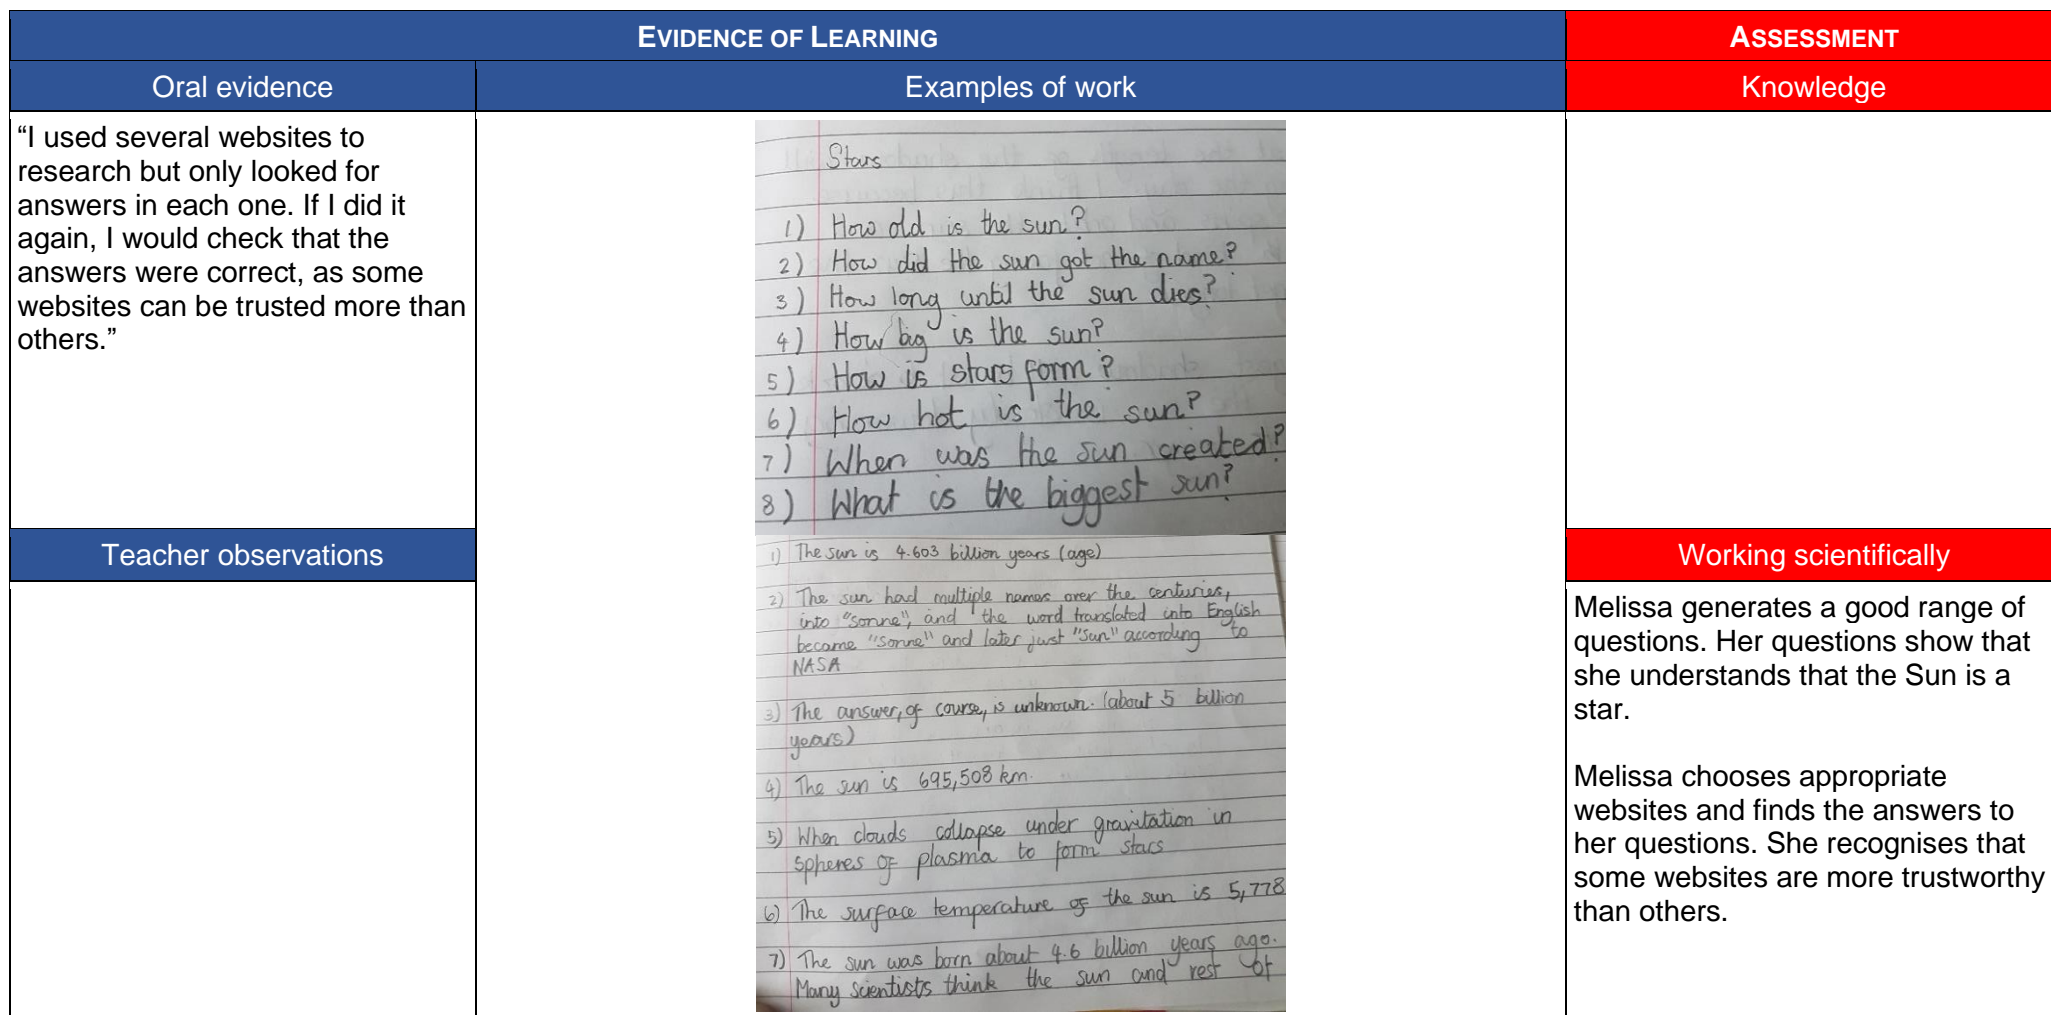 EVIDENCE OF LEARNING
ASSESSMENT
Oral evidence
Examples of work
Knowledge
“I used several websites to
research but only looked for
answers in each one. If I did it
again, I would check that the
answers were correct, as some
websites can be trusted more than
others.”
Stars
1) How old is the sun?
2) How did the sun got the name?
3) How long until the sun dies?
4) How big is the sun?
5) How is stars form?
6) How hot is the sun?
7) When was the sun created?
8) What is the biggest sun?
Teacher observations
1) The sun is 4.603 billion years (age)
2) The sun had multiple names over the centuries,
into "sonne", and the word translated into English
became "sonne" and later just "Sun" according to
NASA
3) The answer, of course, is unknown. (about 5 billion
years)
4) The sun is 695,508 km.
5) When clouds collapse under gravitation in
spheres of plasma to form stars
6) The surface temperature of the sun is 5,778
7) The sun was born about 4.6 billion years ago.
Many scientists think the sun and rest of
Working scientifically
Melissa generates a good range of
questions. Her questions show that
she understands that the Sun is a
star.
Melissa chooses appropriate
websites and finds the answers to
her questions. She recognises that
some websites are more trustworthy
than others.